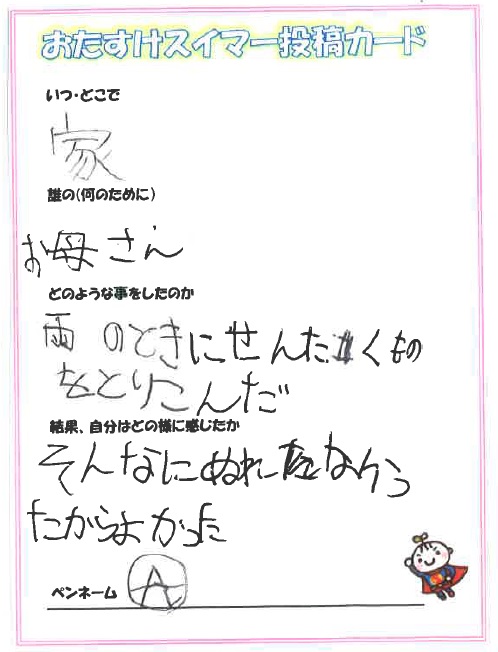 おたすけスイマー投稿カード
いつ・どこで
家
誰の(何のために)
お母さん
どのような事をしたのか
雨のときにせんたくもの
をとりこんだ
結果、自分はどの様に感じたか
そんなにぬれ
たからよかった
ペンネーム A